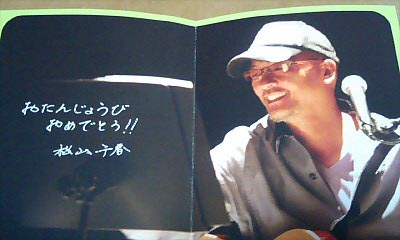 おたんじょうび
おめでとう!!
松山千春